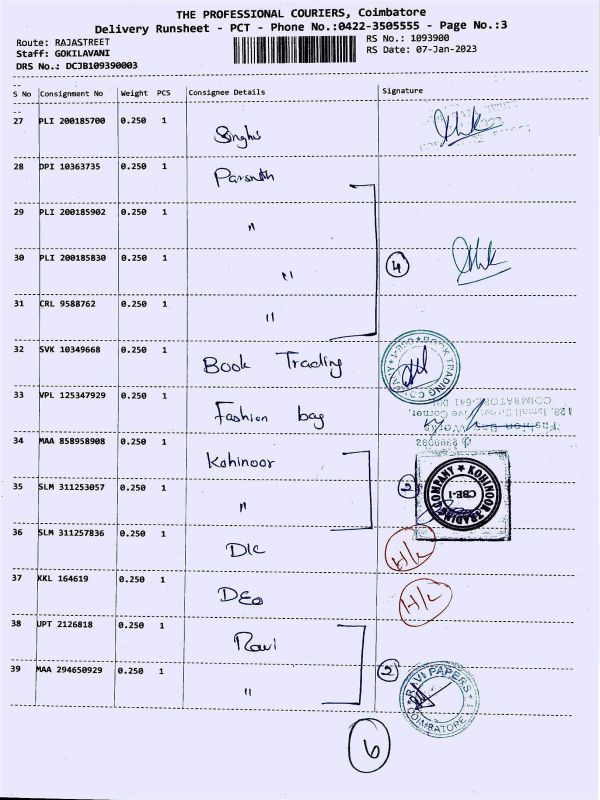 THE PROFESSIONAL COURIERS, Coimbatore
Delivery Runsheet - PCT - Phone No.:0422-3505555 - Page No.:3
Route: RAJASTREET
RS No.: 1093900
Staff: GOKILAVANI
RS Date: 07-Jan-2023
DRS No.: DCJB109390003
S No Consignment No Weight PCS Consignee Details Signature
27 PLI 200185700 0.250 1 Singhvi
28 DPI 10363735 0.250 1 Parsnath
29 PLI 200185902 0.250 1 "
30 PLI 200185830 0.250 1 " 4
31 CRL 9588762 0.250 1 "
32 SVK 10349668 0.250 1 Book Trading
BOOK TRADING COMPANY
33 VPL 125347929 0.250 1 Fashion bag
Fashion Bag Works
COIMBATORE-641 001
34 MAA 858958908 0.250 1 Kohinoor
KOHINOOR TRADING COMPANY
CBE-1
35 SLM 311253057 0.250 1 " 2
36 SLM 311257836 0.250 1 DLC H/L
37 KKL 164619 0.250 1 DEO H/L
38 UPT 2126818 0.250 1 Ravi
39 MAA 294650929 0.250 1 " 2
RAVI PAPERS
COIMBATORE
6